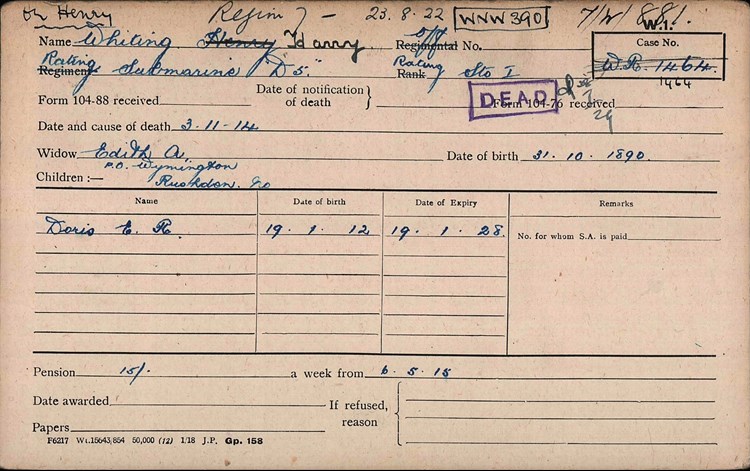 or Henry Regim 7 - 23.8.22 WNW390 7/W/881.
W.I.
Name Whiting Henry Harry Regimental No. O/N Case No.
Rating Rating W.R. 1464
Regiment Submarine "D5" Rank Sto I 1464
Form 104-88 received Date of notification of death DEAD Form 104-76 received
29
Date and cause of death 3-11-14
Widow Edith A. Date of birth 31.10.1890.
P.O. Wymington
Children :— Rushden.
Name Date of birth Date of Expiry Remarks
Doris E. R. 19.1.12 19.1.28. No. for whom S.A. is paid
Pension 15/- a week from 6.5.15
Date awarded If refused, reason
Papers
F6217 Wt.15643/854 50,000 (12) 1/18 J.P. Gp. 158